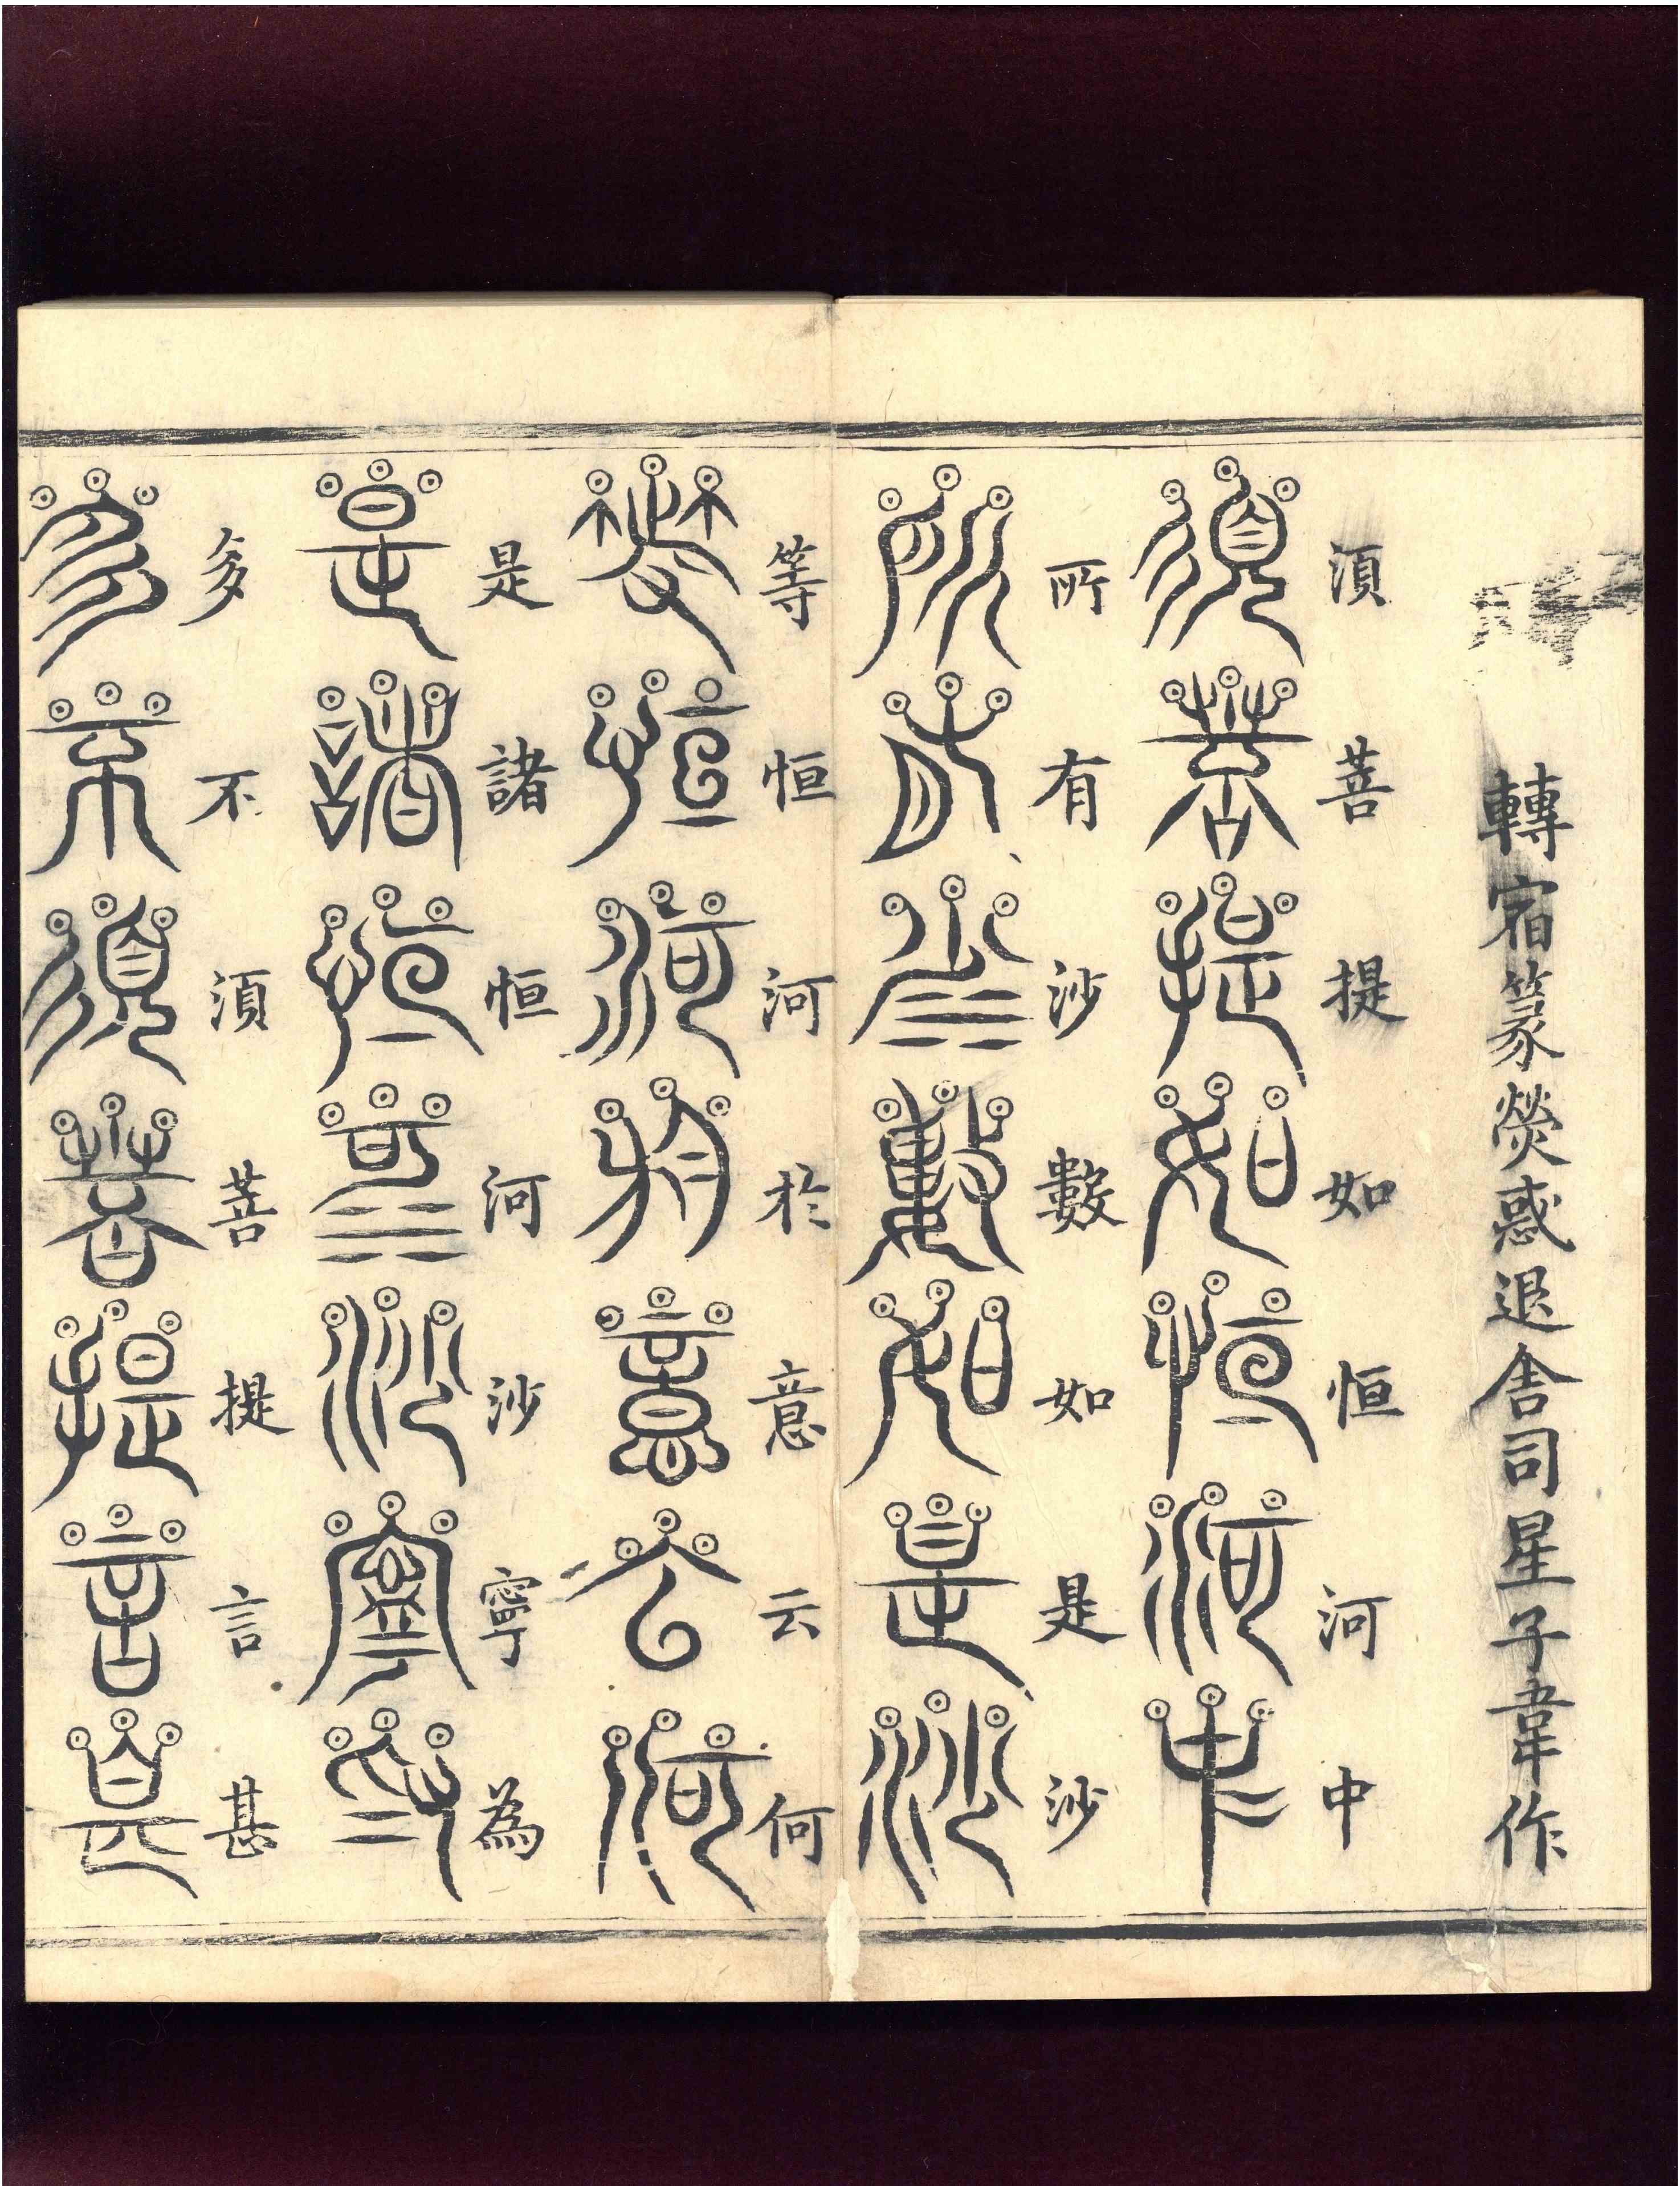 轉宿篆熒惑退舍司星子韋作
須菩提如恒河中
所有沙數如是沙
等恒河於意云何
是諸恒河沙寧為
多不須菩提言甚